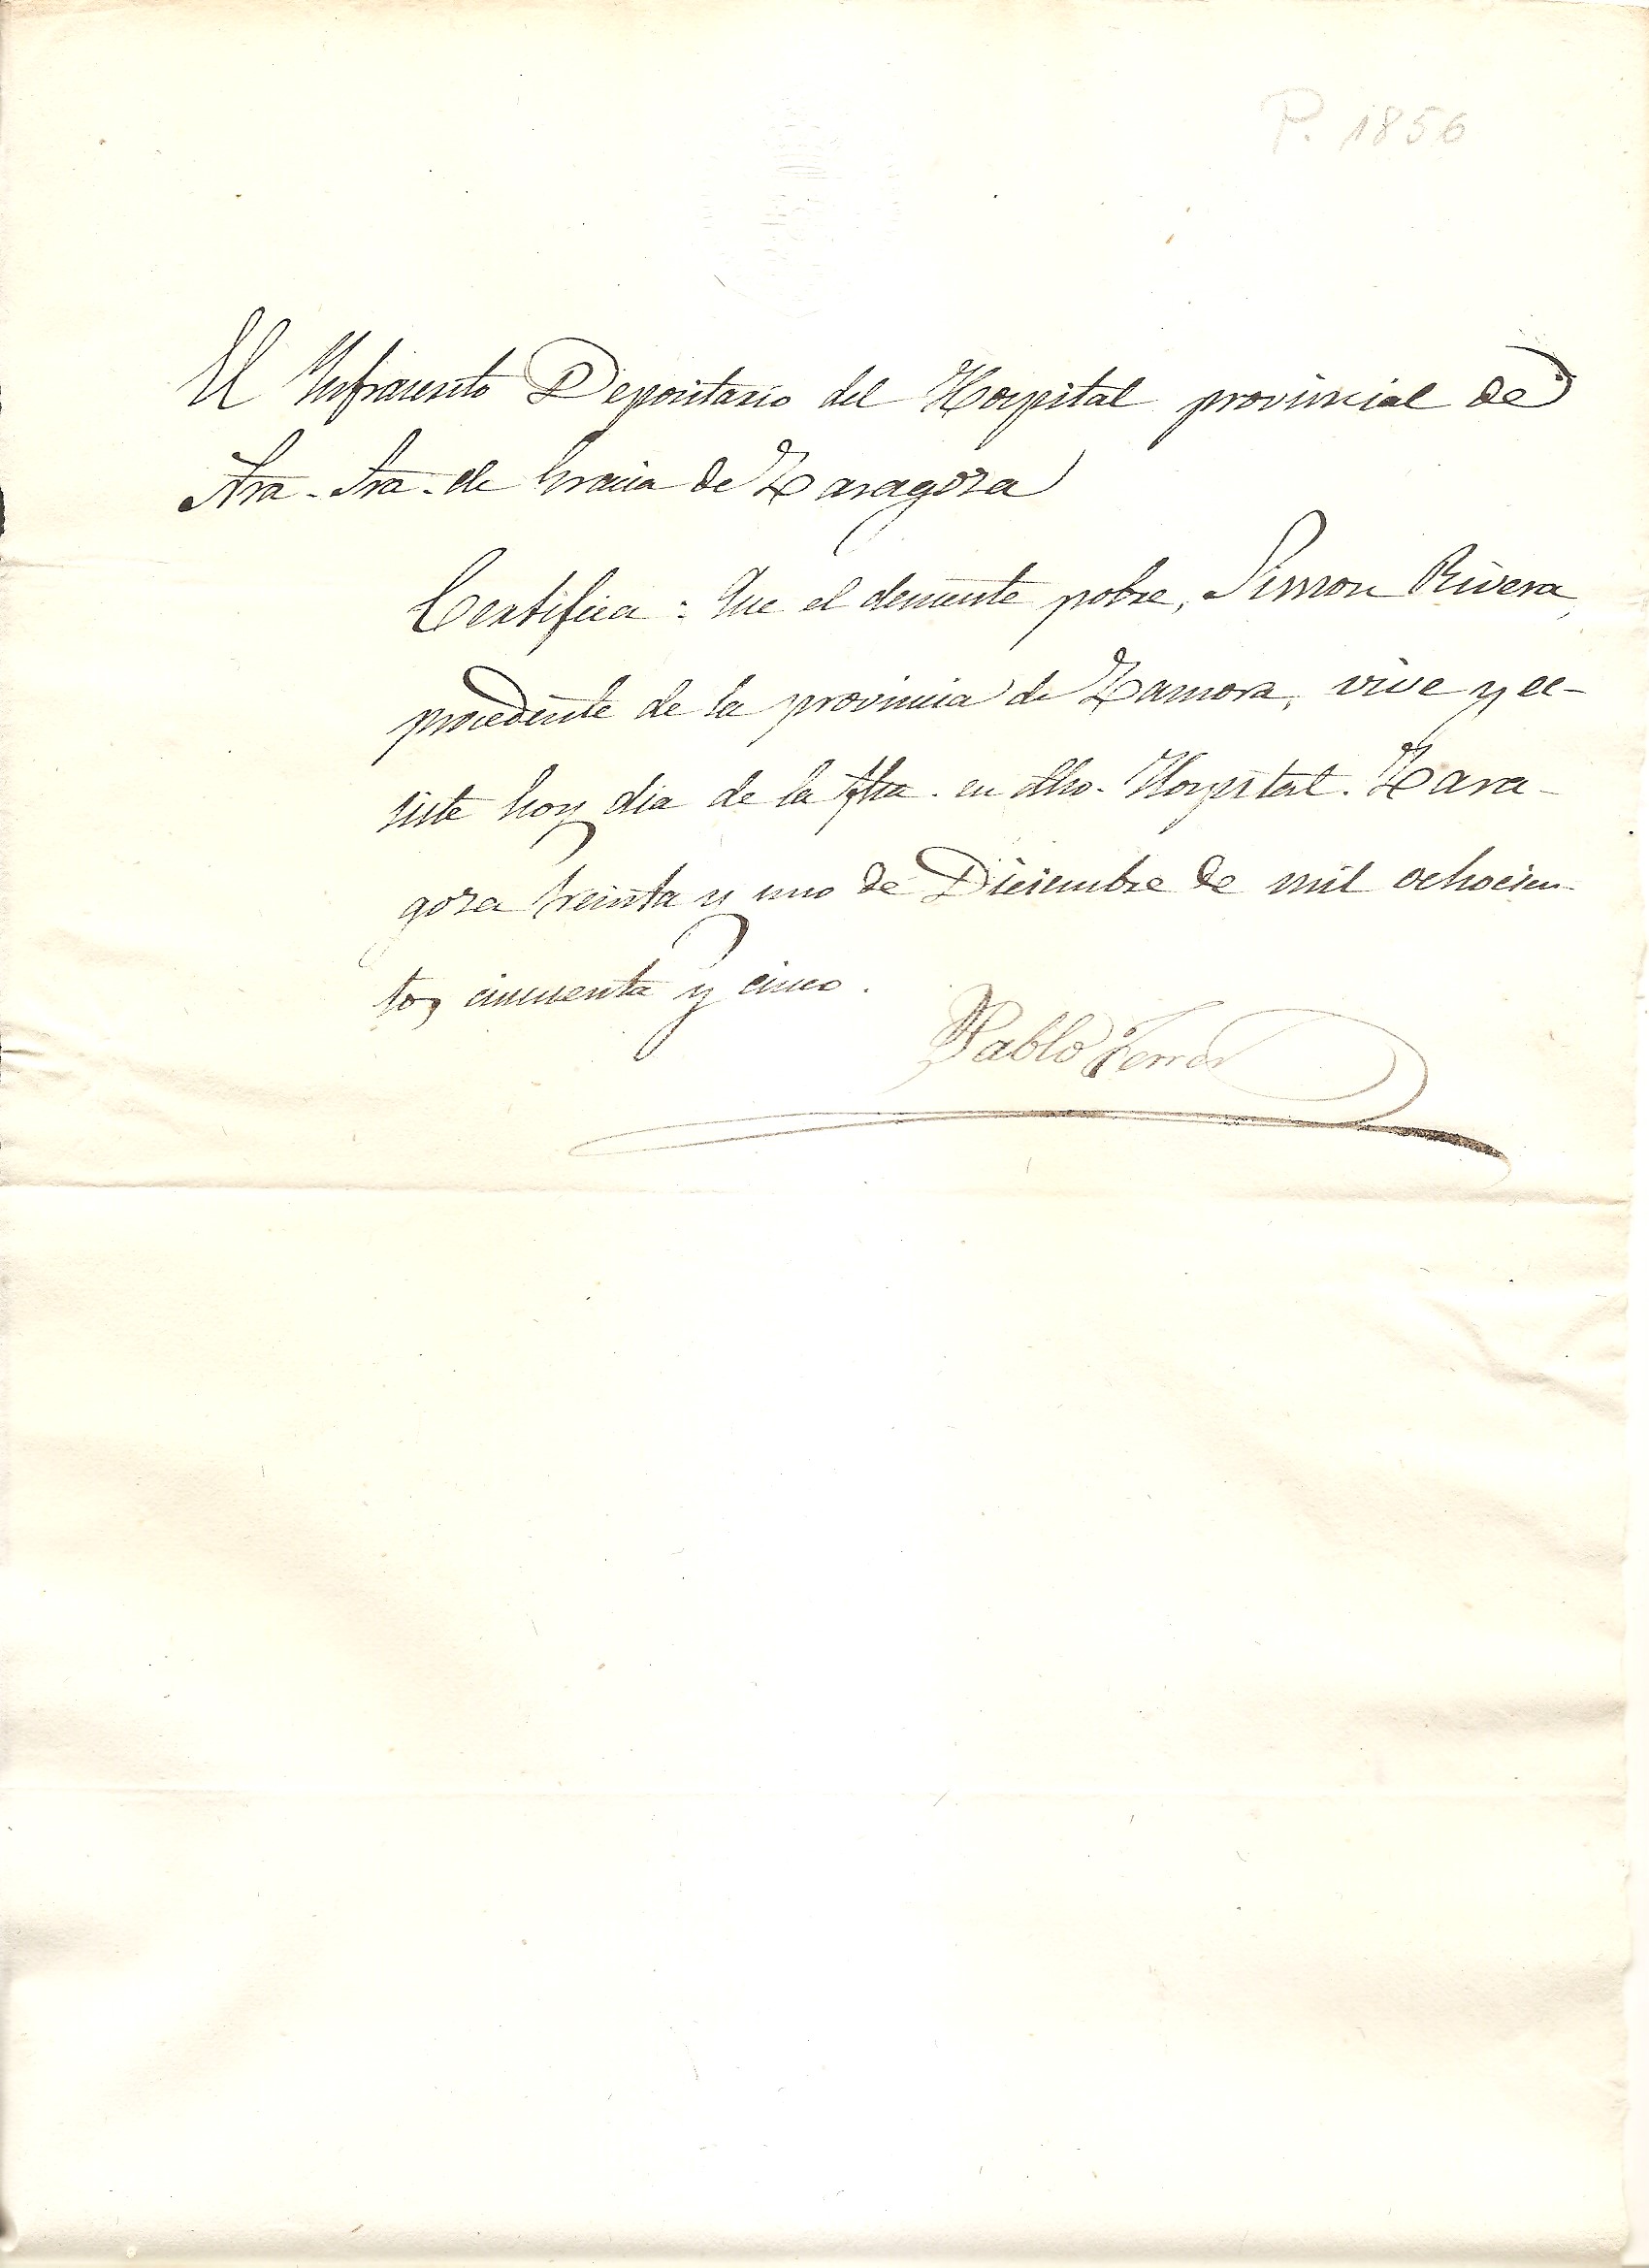 P. 1856
El Infraescrito Depositario del Hospital provincial de
Ntra. Sra. de Gracia de Zaragoza
Certifica: Que el demente pobre, Simon Rivera,
procedente de la provincia de Zamora, vive y ec-
siste hoy dia de la fha. en dho. Hospital. Zara-
goza treinta y uno de Diciembre de mil ochocien-
tos cincuenta y cinco.
Pablo Ferrer